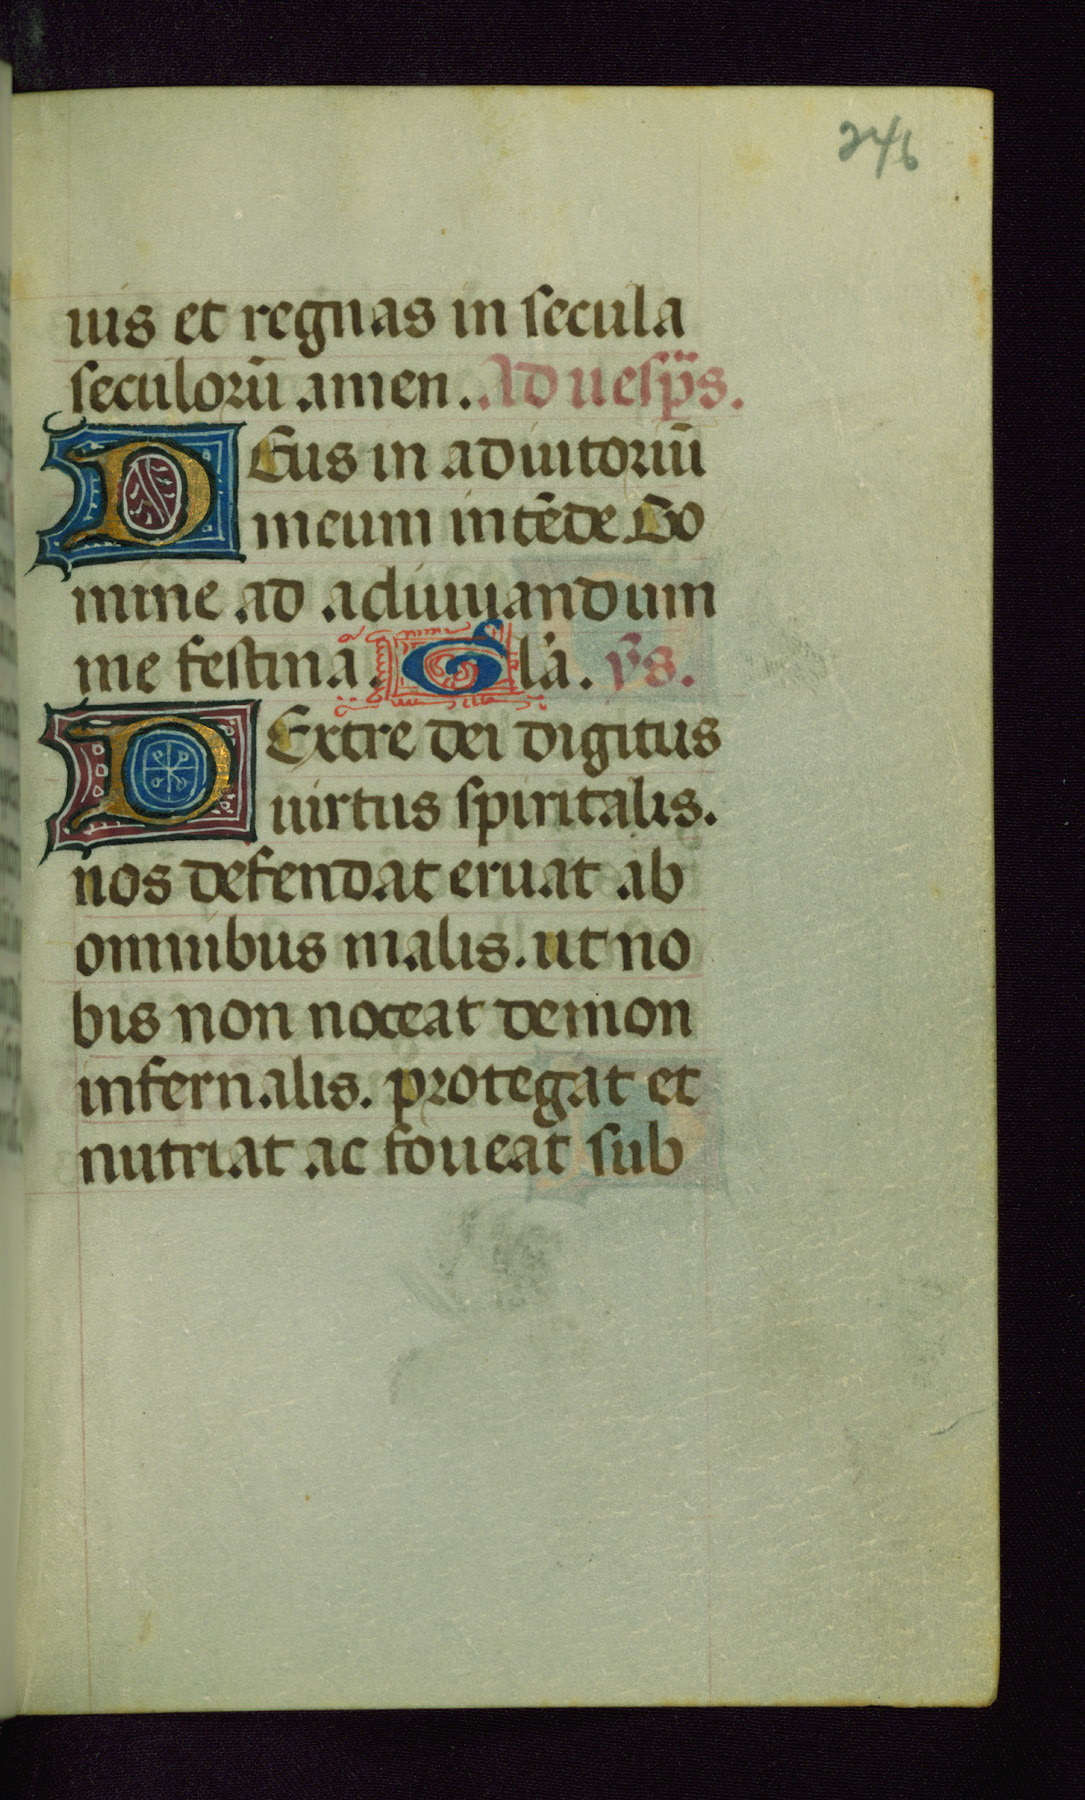 246
uis et regnas in secula
seculorū amen. Ad uesp̄s.
DEus in adiuitoriū
meum intēde Do
mine ad adiuuandum
me festina. Gl̄a. ỹs.
DExtre dei digitus
uirtus spiritalis.
nos defendat eruat ab
omnibus malis. ut no
bis non noceat demon
infernalis. protegat et
nutriat ac foueat sub